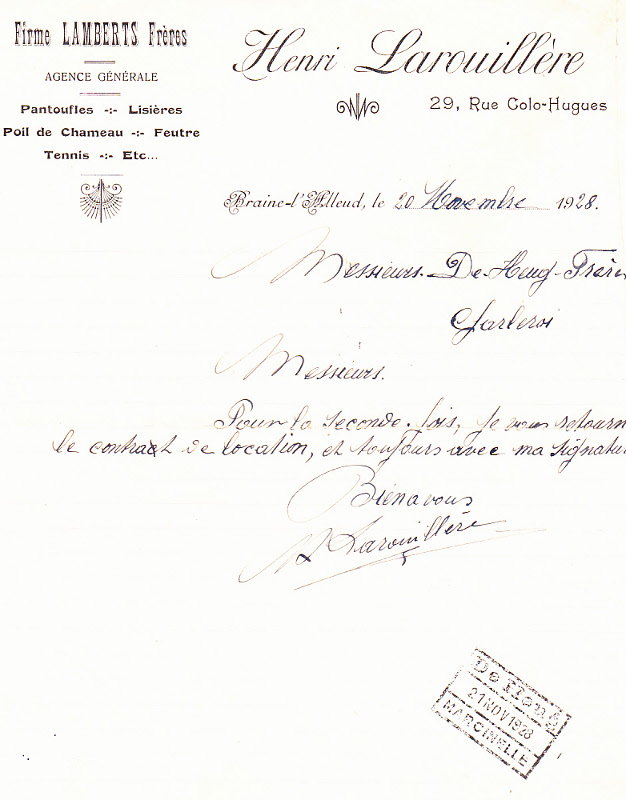 Firme LAMBERTS Frères
AGENCE GÉNÉRALE
Pantoufles -:- Lisières
Poil de Chameau -:- Feutre
Tennis -:- Etc...
Henri Larouillère
29, Rue Colo-Hugues
Braine-l'Alleud, le 20 Novembre 1928.
Messieurs De Heug-Frère
Charleroi
Messieurs.
Pour la seconde fois, je vous retourn
le contract de location, et toujours avec ma signatu
Bien a vous
H Larouillère
De
21 NOV 1928
MARCINELLE